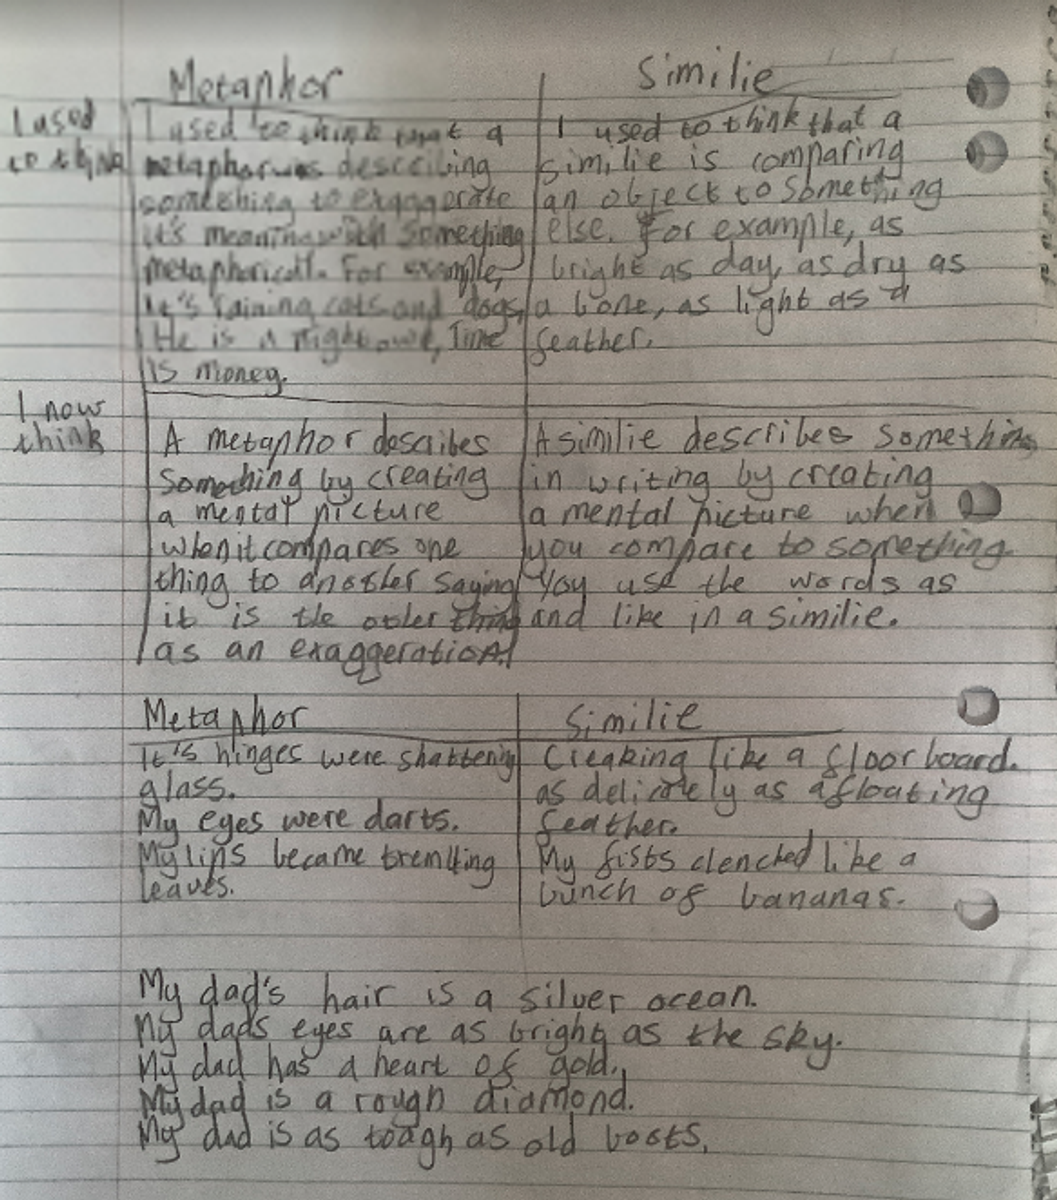 Metaphor
Similie
I used
to think
I used to think that a
metaphor was describing
something to exaggerate
it's meaning with something
metaphoricall. For example,
It's raining cats and dogs,
He is a night owl, Time
is money.
I used to think that a
similie is comparing
an object to something
else. For example, as
bright as day, as dry as
a bone, as light as a
feather.
I now
think
A metaphor describes
something by creating
a mental picture
when it compares one
thing to another saying
it is the other thing
as an exaggeration.
A similie describes something
in writing by creating
a mental picture when
you compare to something
You use the words as
and like in a similie.
Metaphor
Similie
It's hinges were shattering
glass.
My eyes were darts.
My lips became tremlting
leaves.
Creaking like a floorboard.
as delicately as a floating
feather.
My fists clenched like a
bunch of bananas.
My dad's hair is a silver ocean.
My dads eyes are as bright as the sky.
My dad has a heart of gold.
My dad is a rough diamond.
My dad is as tough as old boots.